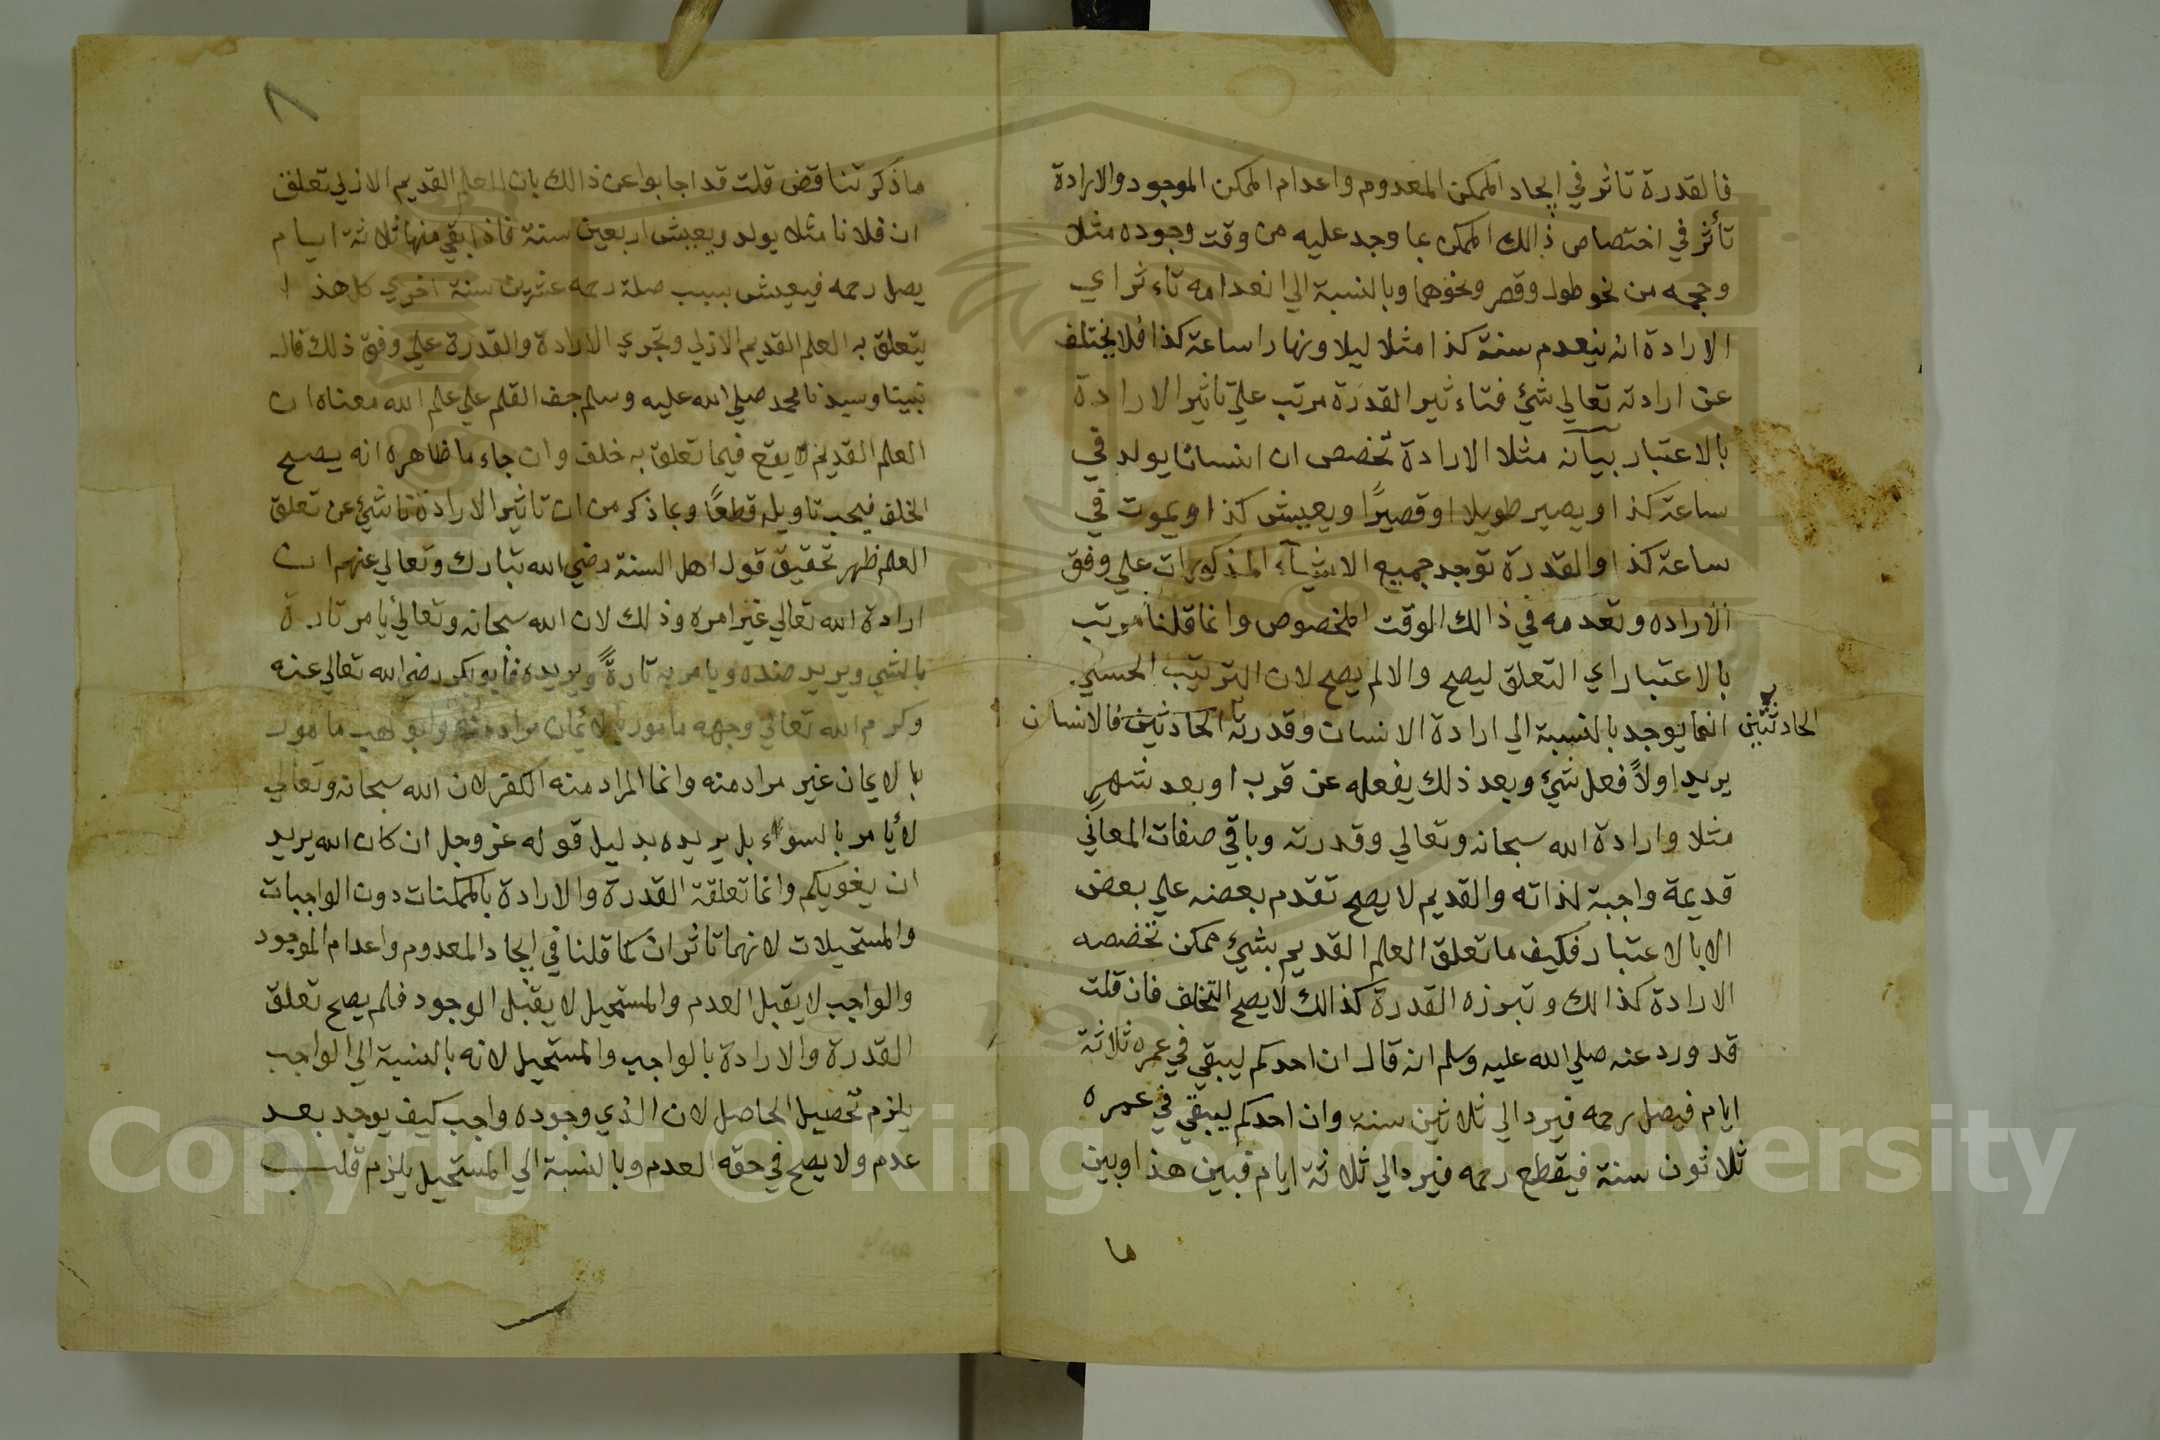 فالقدرة تاثر في ايجاد الممكن المعدوم واعدام الممكن الموجود والارادة
تأثر في اختصاص ذالك الممكن بما وجد عليه من وقت وجوده مثلا
وحجمه من نحو طول وقصر ونحوهما وبالنسبة الي انعدامه تاءثر اي
الارادة انه ينعدم سنة كذا مثلا ليلا ونهارا ساعة كذا فلا يختلف
عن ارادته تعالي شئ فتاءثير القدرة مرتب علي تاثير الارادة
بالاعتبار بيآنه مثلا الارادة تخصص ان انسانا يولد في
ساعة كذا ويصير طويلا او قصيرًا ويعيش كذا ويموت في
ساعة كذا والقدرة توجد جميع الاشيآء المذكورات علي وفق
الاراده وتعدمه في ذالك الوقت المخصوص وانما قلنا مرتب
بالاعتبار اي التعلق ليصح والا لم يصح لان الترتيب الحسي
انما يوجد بالنسبة الي ارادة الانسان وقدرته الحادثين فالانسان
الحادثتين
يريد اولاً فعل شئ وبعد ذلك يفعله عن قرب او بعد شهر
مثلا وارادة الله سبحانه وتعالي وقدرته وباقي صفات المعاني
قديمة واجبة لذاته والقديم لا يصح تقدم بعضه علي بعض
الا بالاعتبار فكيف ما تعلق العلم القديم بشئ ممكن تخصصه
الارادة كذالك وتبرزه القدرة كذالك لا يصح التخلف فان قلت
قد ورد عنه صلي الله عليه وسلم انه قال ان احدكم ليبقي في عمره ثلاثة
ايام فيصل رحمه فيرد الي ثلاثين سنة وان احدكم ليبقي في عمره
ثلاثون سنة فيقطع رحمه فيرد الي ثلاثة ايام فبين هذا وبين
ما
ماذكر تناقض قلت قد اجابوا عن ذالك بان العلم القديم الازلي تعلق
ان فلانا مثلا يولد ويعيش اربعين سنة فاذا بقي منها ثلاثة ايام
يصل رحمه فيعيش بسبب صلة رحمه عشرين سنة اخري كل هذا
يتعلق به العلم القديم الازلي وتجري الارادة والقدرة علي وفق ذلك قال
نبينا وسيدنا محمد صلي الله عليه وسلم جف القلم علي علم الله معناه ان
العلم القديم لا يقع فيما تعلق به خلف وان جاء ما ظاهره انه يصح
الخلف فيجب تاويله قطعًا وبما ذكر من ان تاثير الارادة ناشئ عن تعلق
العلم ظهر تحقيق قول اهل السنة رضي الله تبارك وتعالي عنهم ان
ارادة الله تعالي غير امره وذلك لان الله سبحانه وتعالي يأمر تارة
بالشي ويريد ضده ويامر به تارةً ويريده فابوبكر رضي الله تعالي عنه
وكرم الله تعالي وجهه مامور بالايمان مراد منه وابو لهب مامور
بالايمان غير مراد منه وانما المراد منه الكفر لان الله سبحانه وتعالي
لا يأمر بالسوء بل يريده بدليل قوله عز وجل ان كان الله يريد
ان يغويكم وانما تعلقة القدرة والارادة بالممكنات دون الواجبات
والمستحيلات لانهما تاثران كما قلنا في ايجاد المعدوم واعدام الموجود
والواجب لا يقبل العدم والمستحيل لا يقبل الوجود فلم يصح تعلق
القدرة والارادة بالواجب والمستحيل لانه بالنسبة الي الواجب
يلزم تحصيل الحاصل لان الذي وجوده واجب كيف يوجد بعد
عدم ولا يصح في حقه العدم وبالنسبة الي المستحيل يلزم قلب
Copyright © King Saud University